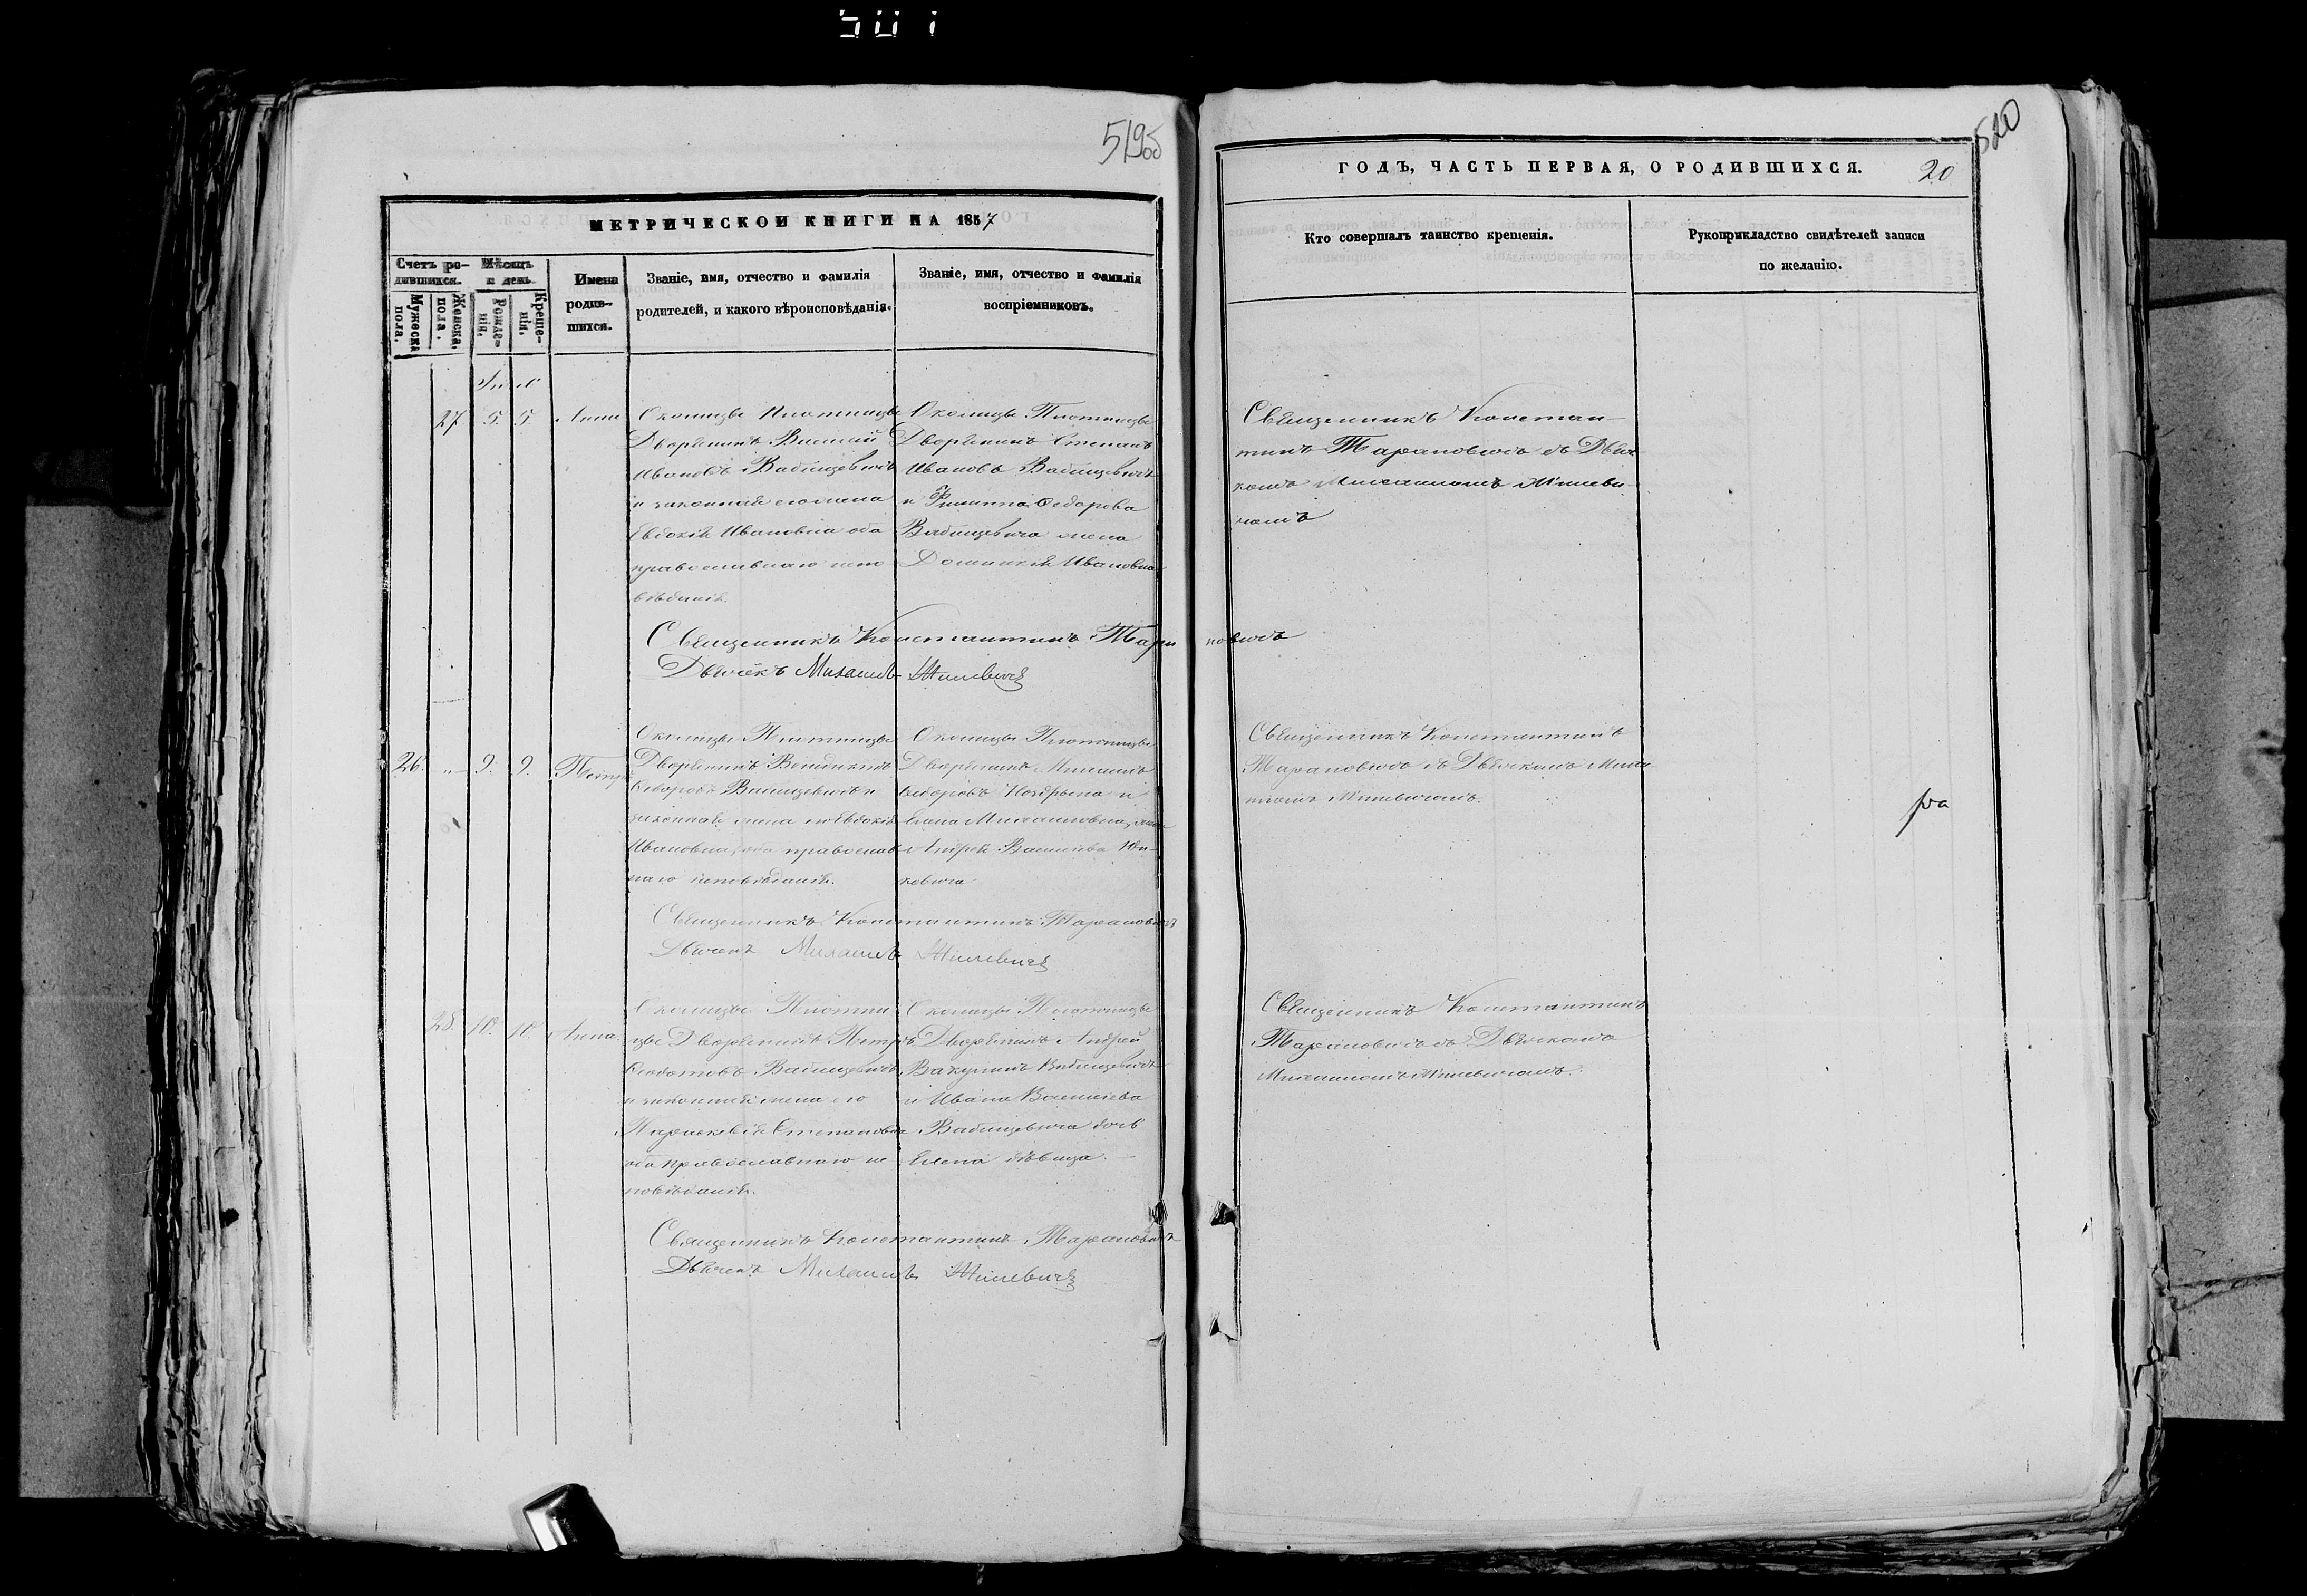 501
519об
МЕТРИЧЕСКОЙ КНИГИ НА 1857
Счетъ ро-
дившихся.
Мѣсяцъ
и день
Мужеска
пола.
Женска.
пола.
Рожде-
нія.
Креще-
нія.
Имена
родив-
шихся.
Званіе, имя, отчество и фамилія
родителей, и какого вѣроисповѣданія.
Званіе, имя, отчество и фамилія
воспріемниковъ.
27 5. 5. Анна
Околицы Плотницы
Дворянинъ
Ивановъ Вабищевичъ
и законная его жена
Евдокія Ивановна оба
православнаго испо
вѣданія.
Околицы Плотницы
Дворянинъ Степанъ
Ивановъ Вабищевичъ
и Филиппа Ѳедорова
Вабищевича жена
Ивановна
Священникъ Константинъ Тарановичъ
Дьячекъ Михаилъ Жилевичъ
26. „ 9. 9. Петръ
Околицы Плотницы
Дворянинъ Венедиктъ
Ѳедоровъ Вабищевичъ и
законная жена его Евдокія
Ивановна, оба православ
наго исповѣданія.
Околицы Плотницы
Дворянинъ Михаилъ
Ѳедоровъ и
Елена Михайловна, жена
Андрея Васильева
ковича
Священникъ Константинъ Тарановичъ
Дьячекъ Михаилъ Жилевичъ
28. 10. 10. Анна.
Околицы Плотни
цы Дворянинъ Петръ
Вабищевичъ
и законная жена его
Параскевія Степановна
оба православнаго ис
повѣданія.
Околицы Плотницы
Дворянинъ Андрей
Вабищевичъ
и Ивана Васильева
Вабищевича дочь
Елена дѣвица.
Священникъ Константинъ Тарановичъ
Дьячекъ Михаилъ Жилевичъ
520
ГОДЪ, ЧАСТЬ ПЕРВАЯ, О РОДИВШИХСЯ. 20
Кто совершалъ таинство крещенія.
Рукоприкладство свидѣтелей записи
по желанію.
Священникъ Констан-
тинъ Тарановичъ съ Дьяч
комъ Михаиломъ Жилеви
чемъ
Священникъ Константинъ
Тарановичъ съ Дьячкомъ Миха
иломъ Жилевичемъ.
Священникъ Константинъ
Тарановичъ съ Дьячкомъ
Михаиломъ Жилевичемъ.